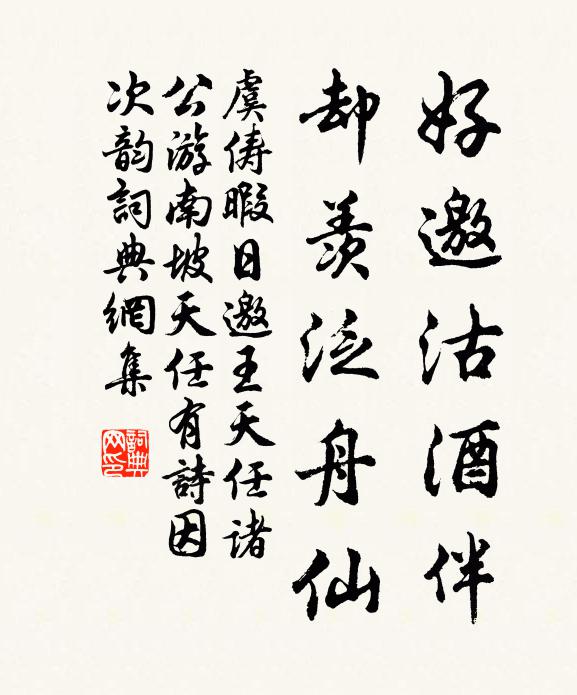 好邀沽酒伴
却羡泛舟仙
虞俦暇日邀王天任诸
公游南坡天任有詩因
次韵詞典網集
詞典网印